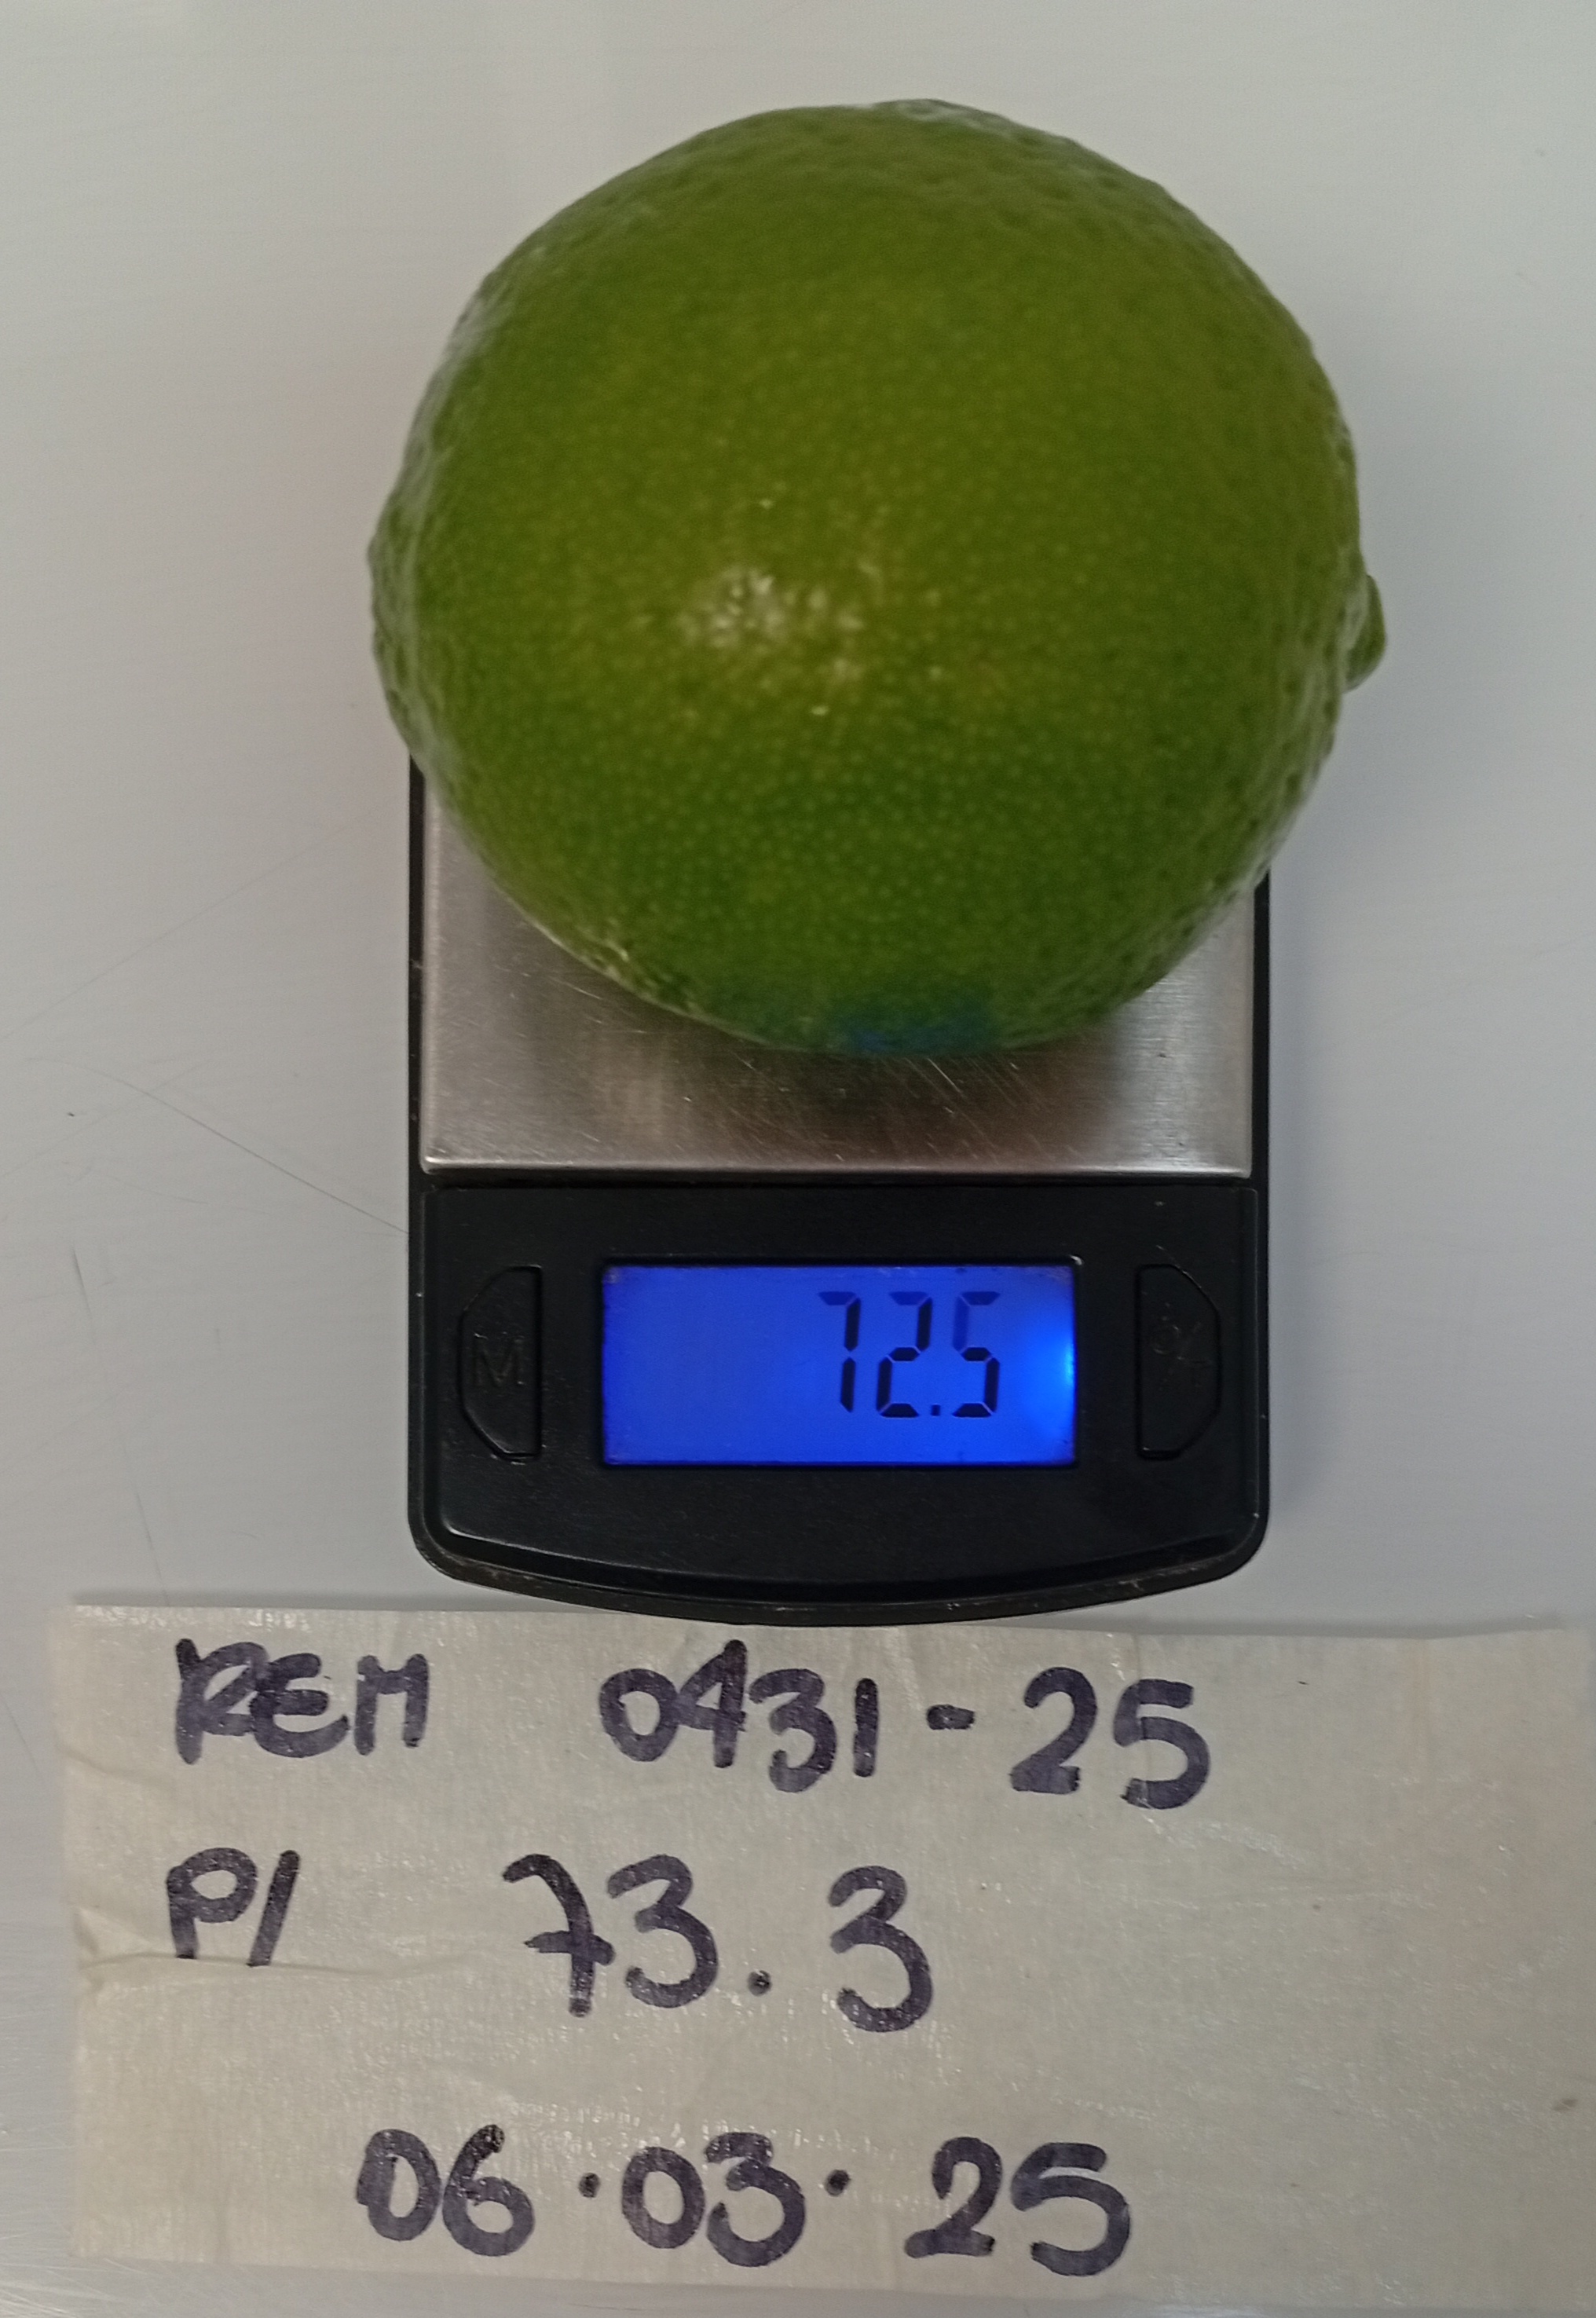 72.5
M
REM 0431-25
PI 73.3
06.03.25